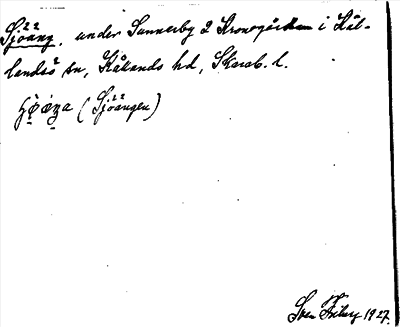 Sjöäng, under Sunnerby 2 Kronogården i Kål-
landsö sn, Kållands hd, Skarab. l.
(Sjöängen)
Sven Friberg 1927.